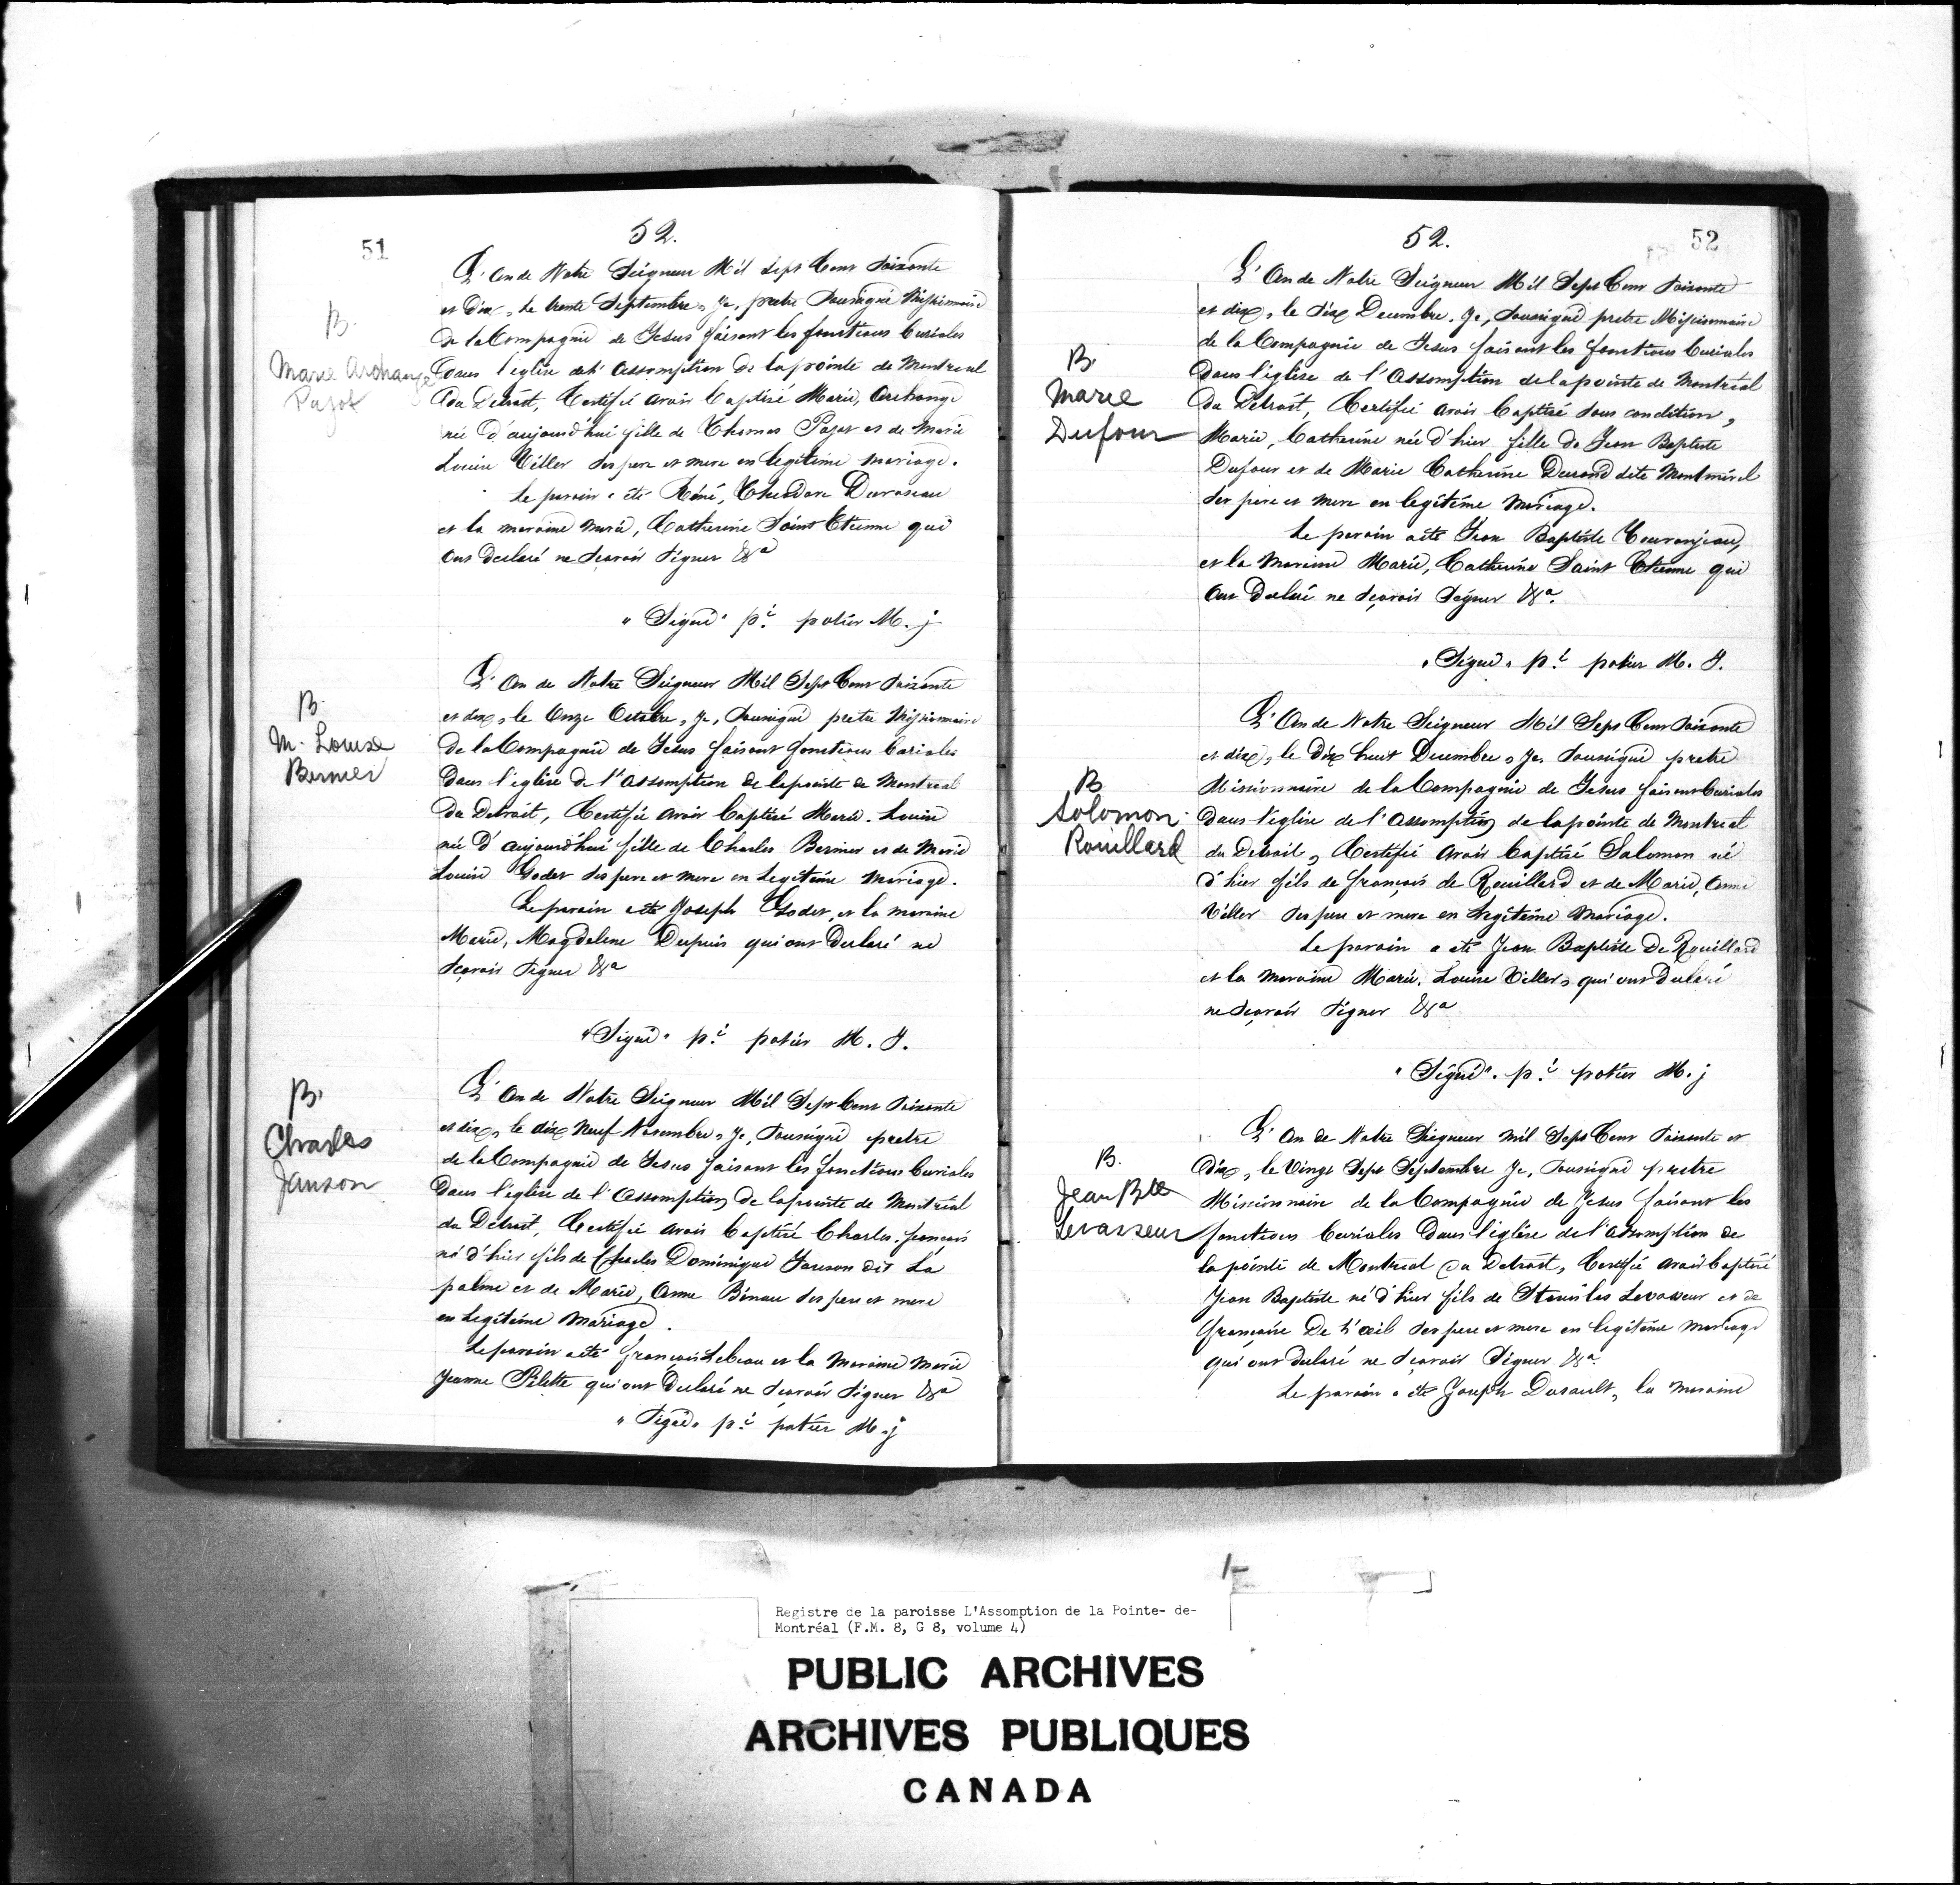 51
52.
B.
Marie Archange
Pajot
L'An de Notre Seigneur Mil Sept Cent Soixante
et Dix, le trente Septembre, Je, pretre Soussigné Missionnaire
de la Compagnie de Jesus faisant les fonctions Curiales
Dans l'eglise de l'Assomption de la pointe de Montreal
du Detroit, Certifie avoir Baptisé Marie, Archange
née d'aujourd'hui fille de Thomas Pajot et de Marie
Louise Viller ses pere et mere en legitime mariage.
Le parain a été Réné, Theodore Duroseau
et la maraine Marie, Catherine Saint Etienne qui
ont declaré ne scavoir signer &a
"Signé" p.e potier M. j
B.
M. Louise
Bernier
L'An de Notre Seigneur Mil Sept Cent Soixante
et dix, le Onze Octobre, Je, Soussigné pretre Missionnaire
de la Compagnie de Jesus faisant fonctions Curiales
Dans l'eglise de l'Assomption de la pointe de Montreal
du Detroit, Certifie avoir Baptisé Marie, Louise
née d'aujourd'hui fille de Charles Bernier et de Marie
Louise Godet ses pere et mere en Legitime Mariage.
Le parain a été Joseph Godet, et la maraine
Marie, Magdelene Dupuis qui ont Declaré ne
scavoir signer &a
"Signé" p.e potier M. J.
B.
Charles
Janson
L'An de Notre Seigneur Mil Sept Cent Soixante
et dix, le dix Neuf Novembre, Je, Soussigné pretre
de la Compagnie de Jesus faisant les fonctions Curiales
Dans l'eglise de l'Assomption de la pointe de Montréal
du Détroit, Certifie avoir Baptisé Charles, françois
né d'hier fils de Charles Dominique Janson dit La
palme et de Marie, Anne Binau ses pere et mere
en Legitime Mariage.
Le parain a été françois Lebeau et la Maraine Marie
Jeanne Pilette qui ont Declaré ne scavoir signer &a
"Signé" p.e potier M. j
52.
52
B.
Marie
Dufour
L'An de Notre Seigneur Mil Sept Cent Soixante
et dix, le dix Decembre, Je, Soussigné pretre Missionnaire
de la Compagnie de Jesus faisant les fonctions Curiales
Dans l'église de l'Assomption de la pointe de Montréal
du Détroit, Certifie avoir Baptisé sous condition,
Marie, Catherine née d'hier fille de Jean Baptiste
Dufour et de Marie Catherine Durand dite Montmirel
ses pere et mere en legitime Mariage.
Le parain a été Jean Baptiste Touranjeau,
et la Maraine Marie, Catherine Saint Etienne qui
ont Declaré ne scavoir Signer &a.
"Signé" p.e potier M. J.
B
Solomon
Rouillard
L'An de Notre Seigneur Mil Sept Cent Soixante
et dix, le dix huit Decembre, Je, Soussigné pretre
Missionnaire de la Compagnie de Jesus faisant Curiales
Dans l'église de l'Assomption de la pointe de Montreal
du Detroit, Certifie avoir Baptisé Salomon né
d'hier fils de françois de Rouillard et de Marie, Anne
Viller ses pere et mere en Legitime Mariage.
Le parain a été Jean Baptiste De Rouillard
et la Maraine Marie, Louise Viller, qui ont Declaré
ne scavoir signer &a
"Signé". p.e potier M. j
B.
Jean Bte
Levasseur
L'An de Notre Seigneur mil Sept Cent Soixante et
dix, le Vingt Sept Septembre Je, Soussigné pretre
Missionnaire de la Compagnie de Jesus faisant les
fonctions Curiales Dans l'eglise de l'Assomption de
la pointe de Montreal du Detroit, Certifie avoir baptisé
Jean Baptiste né d'hier fils de Stanislas Levasseur et de
françoise De L'oeil ses pere et mere en legitime mariage
qui ont declaré ne scavoir signer &a
Le parain a été Joseph Dusault, la maraine
Registre de la paroisse L'Assomption de la Pointe- de-
Montréal (F.M. 8, G 8, volume 4)
PUBLIC ARCHIVES
ARCHIVES PUBLIQUES
CANADA